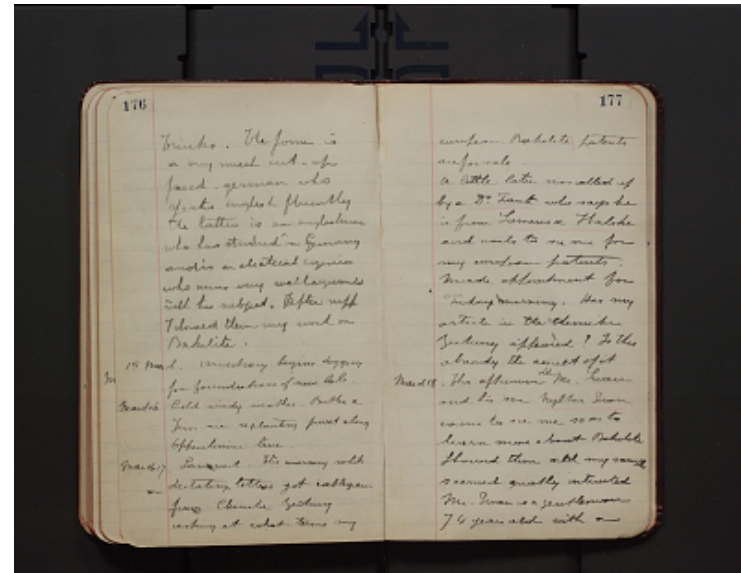 176
Trinks. The former is
a very much cut-up
faced german who
speaks english fluently
the latter is an englishman
who has studied in Germany
and is an electrical engineer
who seems very well acquainted
with his subject. After supper
I showed them my work on
Bakelite.
begins digging
for foundations of new lab.
March 16 Cold windy weather.
are replanting privet along
line
March 17 This morning while
dictating letters got cablegram
from Chemiker Zeitung
asking at what terms my
177
european Bakelite patents
are for sale.
A little later was called up
by a Dr. Frank who says he
is from Siemens & Halske
and wants to see me for
my european patents.
Made appointment for
morning. Has my
article in the Chemiker
Zeitung appeared? Is this
already the result of it
March 18. This afternoon Mr. Swan
and his son Swan
came to see me so as to
learn more about Bakelite
Showed them all my
seemed greatly interested
Mr. Swan is a gentleman
76 years old with a